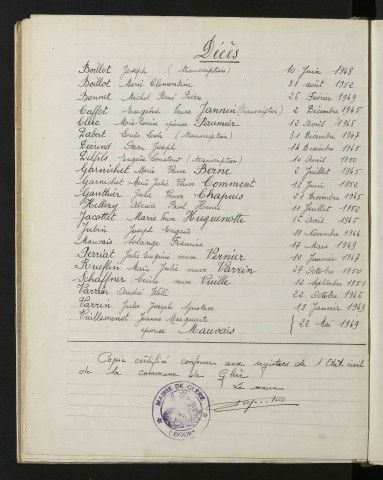 Décès
Boillot Joseph (transcription) 10 Juin 1948
Boillot Marie Clementine 31 août 1952
Bonnet Michel René Pierre 26 Février 1949
Caffot Eugénie Veuve Jannin (transcription) 2 Décembre 1945
Clerc Marie-Louise épouse Paumier 12 Avril 1948
Dabert Louis Léon (transcription) 31 Décembre 1947
Jean Joseph 14 Décembre 1945
Delfils Eugène Constant (transcription) 10 Avril 1950
Garnichet Marie Veuve Berne 2 Juillet 1945
Garnichet Marie Julie Veuve Comment 12 Juin 1950
Gauthier Julie Veuve Chapuis 21 Décembre 1945
Paul Henri 11 Juillet 1952
Jacottet Marie Veuve Huguenotte 15 Avril
Jubin Joseph Eugène 18 Novembre 1946
Mauvais Solange Francine 17 Mars 1949
Perriat Julie Eugénie veuve Vernier 10 Janvier 1947
Marie Julie veuve Varrin 27 Octobre 1950
Schaffner Cécile veuve Vieille 12 Septembre 1951
Varrin André 22 Octobre 1946
Varrin Jules Joseph Gustave 19 Janvier 1949
Vuillemenot Jeanne Marguerite
épouse Mauvais 22 Mai 1949
Copie certifiée conforme aux registres de l'Etat civil
de la commune de Glère
Le maire
MAIRIE DE GLÈRE
(DOUBS)